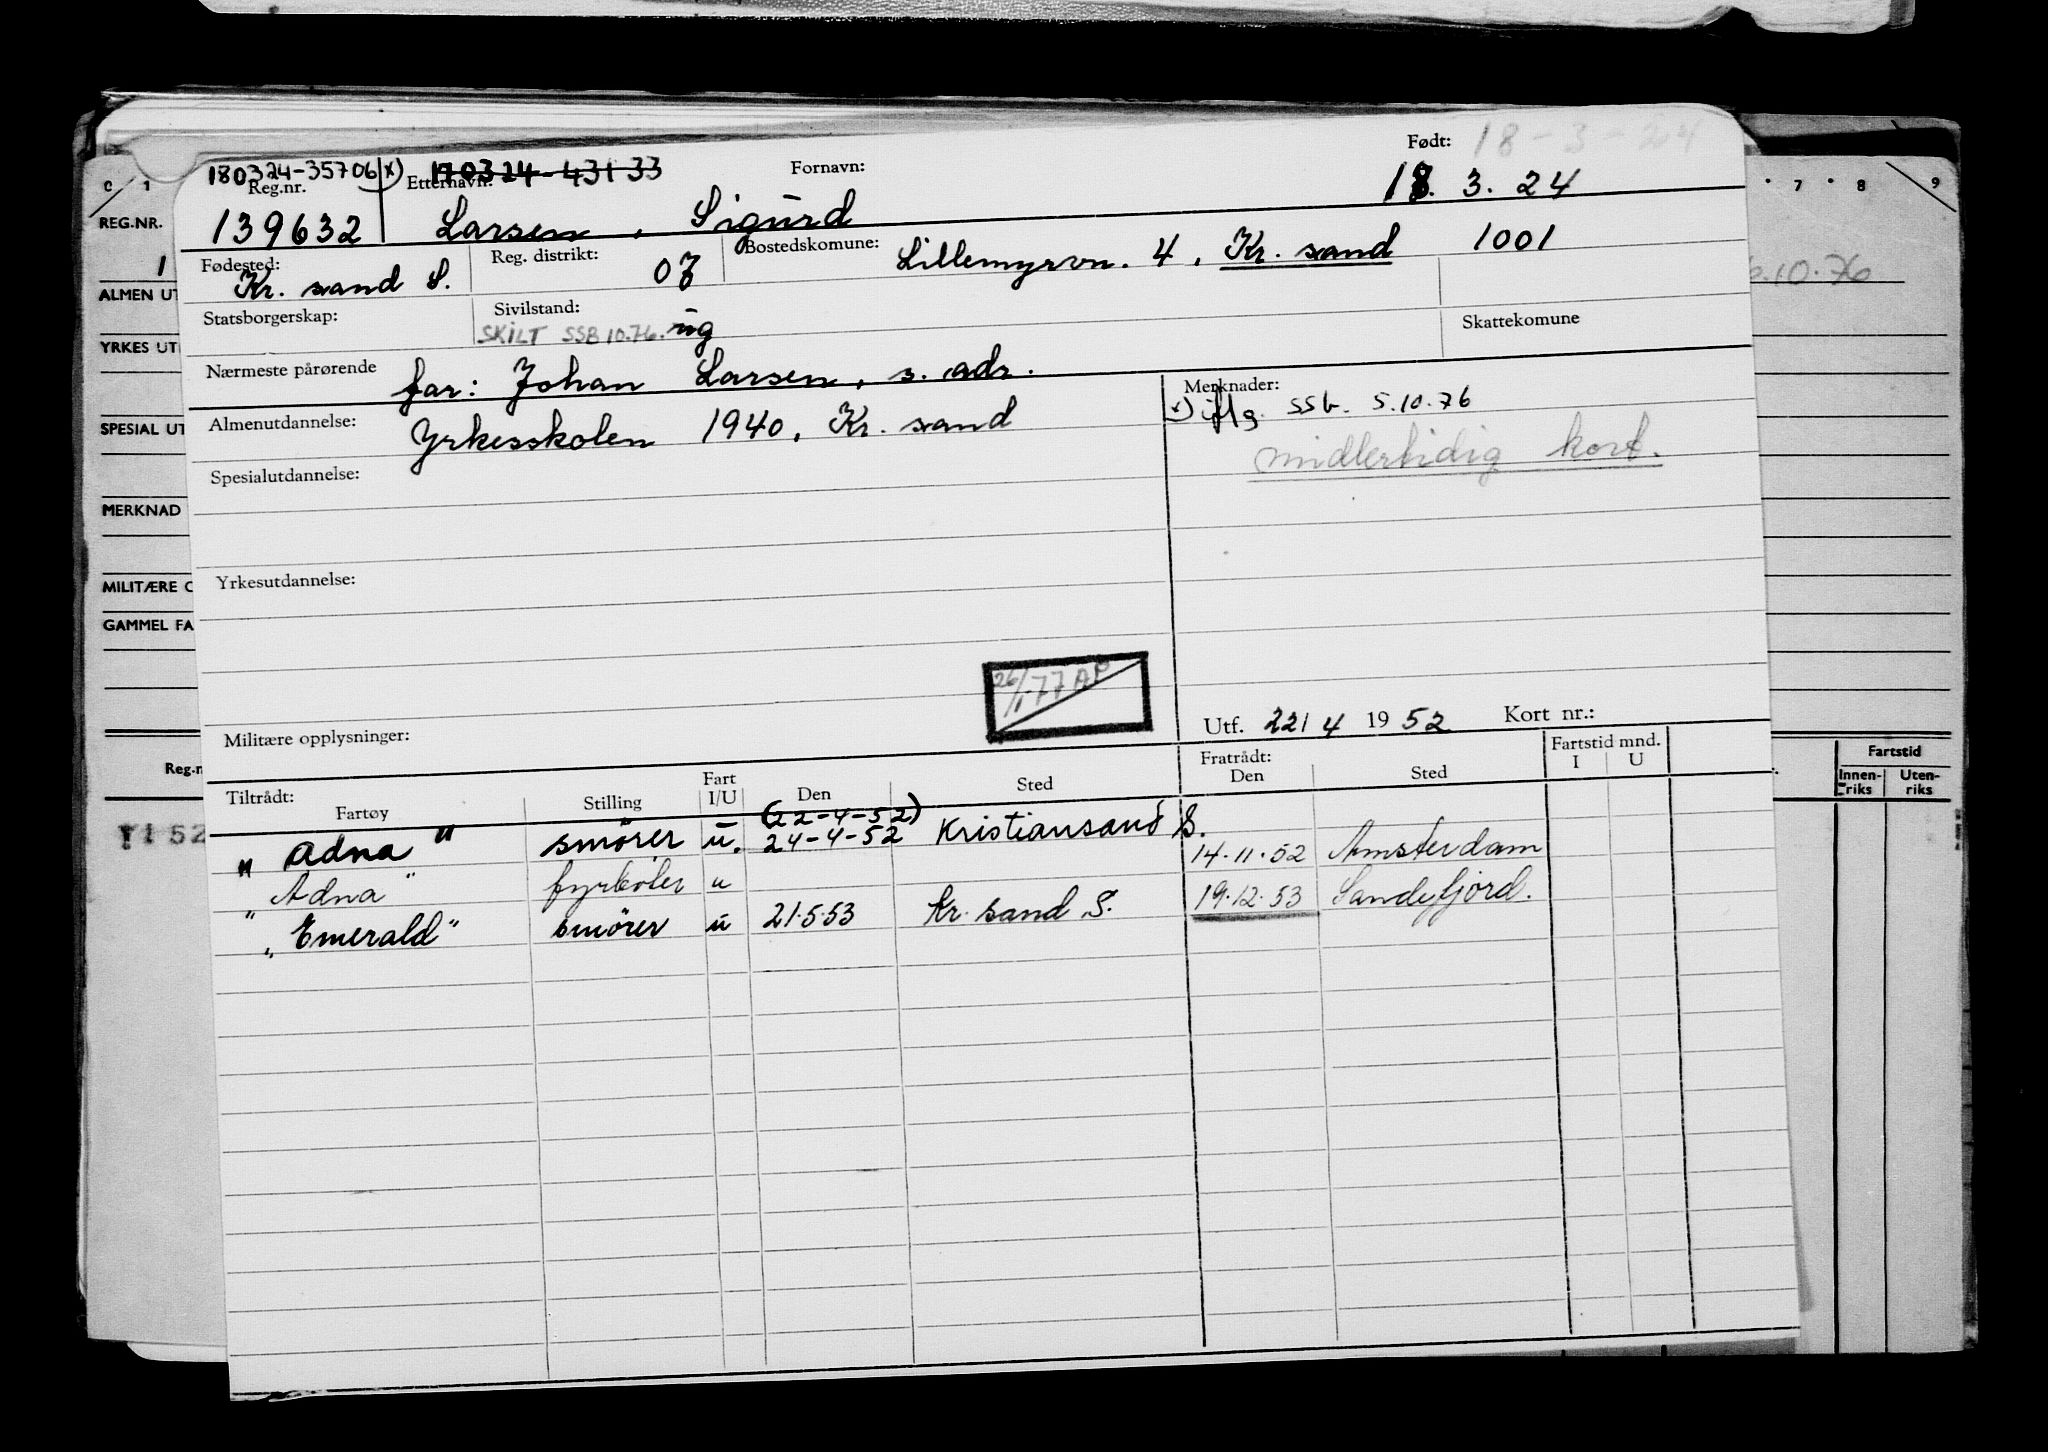 Født: 18-3-24
180324-35706 x) 170324-43133
Reg.nr. Etternavn: Fornavn: 18. 3. 24
139632 Larsen, Sigurd
Fødested: Reg. distrikt: Bostedskomune:
Kr. sand S. 07 Lillemyrvn. 4, Kr. sand 1001
Statsborgerskap: Sivilstand: Skattekomune
SKILT SSB 10.76. ug
Nærmeste pårørende far: Johan Larsen, s. adr.
Merknader:
x) iflg. SSb. 5.10.76
midlertidig kort.
Almenutdannelse: Yrkesskolen 1940, Kr. sand
Spesialutdannelse:
Yrkesutdannelse:
26/1-77 AP
Militære opplysninger:
Utf. 22/4 1952 Kort nr.:
Tiltrådt: Fratrådt: Fartstid mnd.
Fartøy Stilling Fart I/U Den Sted Den Sted I U
(22-4-52)
"Adna" smører u. 24-4-52 Kristiansand S. 14.11.52 Amsterdam
"Adna" fyrbøter u 19.12.53 Sandefjord.
"Emerald" smører u 21.5.53 Kr. sand S.
C 1
REG.NR.
1
ALMEN UT
YRKES UT
SPESIAL UT
MERKNAD
MILITÆRE O
GAMMEL FA
Reg.n
7 8 9
10.76
Fartstid
Innen-riks Uten-riks